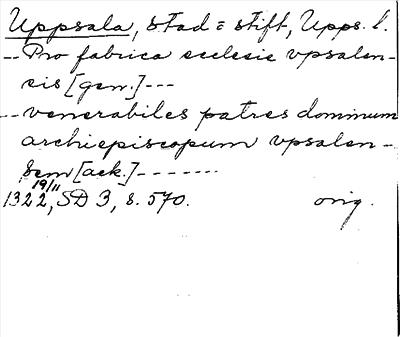 Uppsala, stad o stift, Upps. l.
-- Pro fabrica ecclesie vpsalen-
sis [gen.] ---
-- venerabiles patres dominum
archiepiscopum vpsalen-
sem [ack.] -------
1322 19/11, SD 3, s. 570. orig.